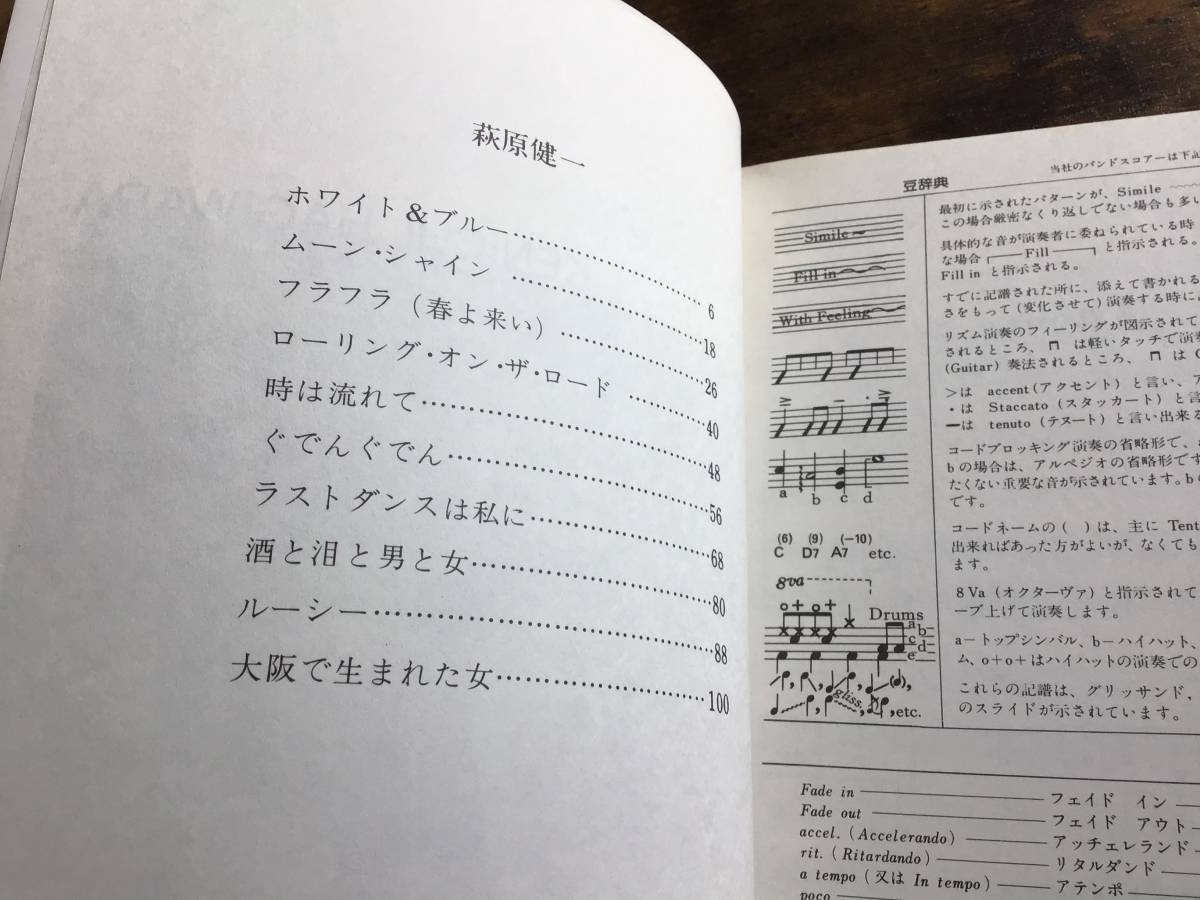 萩原健一
ホワイト&ブルー……………………6
ムーン・シャイン……………………18
フラフラ（春よ来い）………………26
ローリング・オン・ザ・ロード………40
時は流れて……………………………48
ぐでんぐでん…………………………56
ラストダンスは私に…………………68
酒と泪と男と女………………………80
ルーシー………………………………88
大阪で生まれた女……………………100
当社のバンドスコアーは下記
豆辞典
Simile
Fill in
With Feeling
a b c d
(6) (9) (-10)
C D7 A7 etc.
8va
o+o+
Drums
a
b
c
d
e
gliss.
etc.
最初に示されたパターンが、Simile
この場合厳密なくり返しでない場合も多い
具体的な音が演奏者に委ねられている時
な場合 Fill と指示される。
Fill in と指示される。
すでに記譜された所に、添えて書かれる
さをもって(変化させて)演奏する時に
リズム演奏のフィーリングが図示されて
されるところ、⊓ は軽いタッチで演
(Guitar) 奏法されるところ、⊓ は
>は accent(アクセント) と言い、
・は Staccato (スタッカート) と
ーは tenuto (テヌート) と言い出来る
コードブロッキング演奏の省略形で、
bの場合は、アルペジオの省略形です
たくない重要な音が示されています。b
です。
コードネームの( )は、主に Tent
出来ればあった方がよいが、なくても
ます。
8 Va (オクターヴァ) と指示されて
ーブ上げて演奏します。
aートップシンバル、bーハイハット、
ム、o+o+はハイハットの演奏での
これらの記譜は、グリッサンド、
のスライドが示されています。
Fade in フェイド イン
Fade out フェイド アウト
accel. (Accelerando) アッチェレランド
rit. (Ritardando) リタルダンド
a tempo (又は In tempo) アテンポ
poco